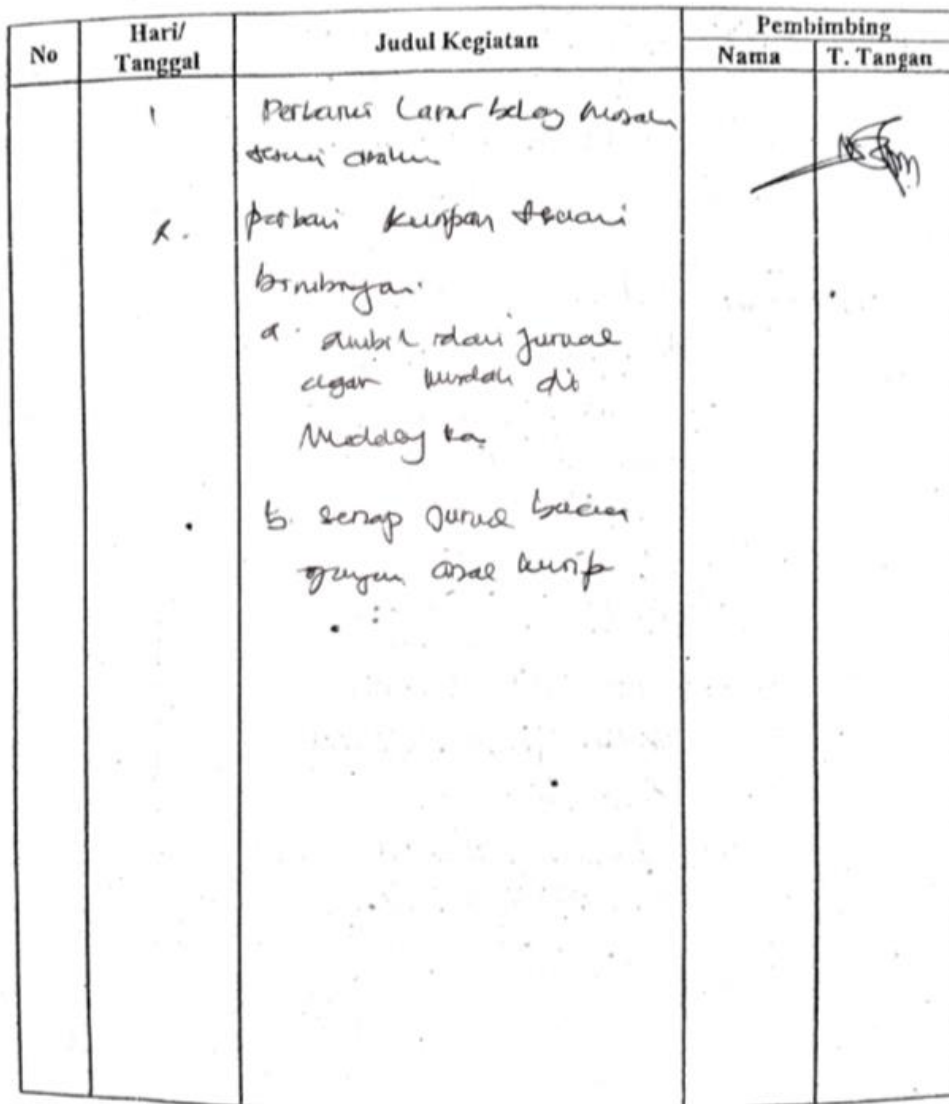 No
Hari/ Tanggal
Judul Kegiatan
Pembimbing
Nama
T. Tangan
1
Perbaiki Latar belag Masalah
sesuai arahan
2.
perbaiki kutipan sesuai
bimbingan.
a. ambil dari jurnal
agar mudah di
b. setiap jurnal bacaan
jangan asal kutip